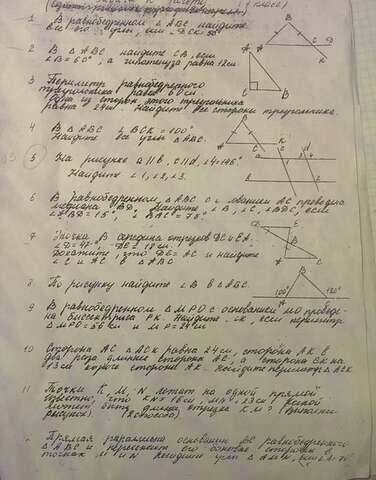 1 В равнобедренном △ABC найдите
все его углы, если ∠DCK=50°
2 В △ABC найдите CB, если
∠B=60°, а гипотенуза равна 12см.
3 Периметр равнобедренного
треугольника равен 60см
одна из сторон этого треугольника
равна 24см. Найдите все стороны треугольника.
4 В △ABC ∠BCK = 100°
Найдите все углы △ABC.
5 На рисунке a||b, c||d, ∠4=
Найдите ∠1, ∠2, ∠3.
6 В равнобедренном △ABC с основанием AC проведена
медиана BD. Найдите ∠B, ∠C, ∠BDC, если
∠ABD=15°, ∠BAC=75°
7 Точка B середина отрезков DC и EA.
∠D=47°, DE=12см.
Докажите, что DE=AC и найдите
∠C и AC в △ABC
8 По рисунку найдите ∠B в △ABC
9 В равнобедренном △MPO с основанием MO проведе-
на биссектриса PK. Найдите OK, если периметр
△MPO=56см и MP=24см
10 Сторона AC △ACK равна 24см, сторона AK в
два раза длиннее стороны AC, а сторона CK на
13см короче стороны AK. Найдите периметр △ACK
11 Точки K, M, N лежат на одной прямой
известно, что KN=16см, MN=23см Какой
может быть длина отрезка KM? (Выполни
рисунок)
Прямая параллельна основанию BC равнобедренного
△ABC и пересекает его боковые стороны в
точках M и N Найдите углы △AMN, если